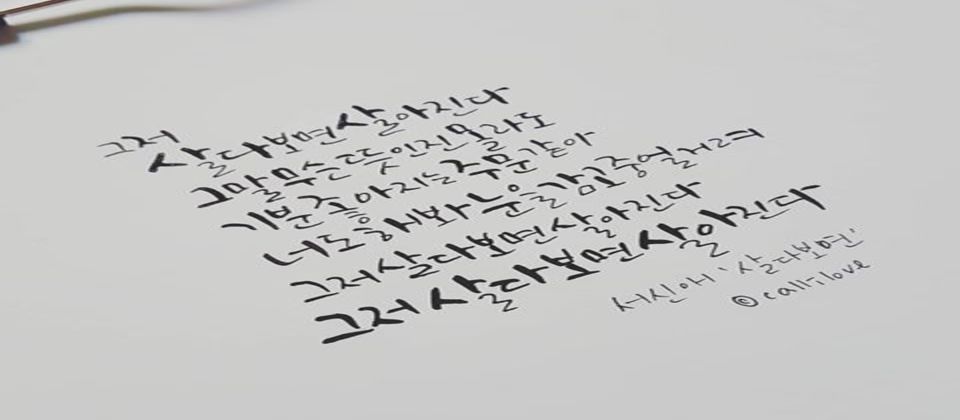 그저
살다보면 살아진다
그말 무슨 뜻인진 몰라도
기분 좋아지는 주문 같아
너도 해봐 눈을 감고 중얼거려
그저 살다보면 살아진다
그저 살다보면 살아진다
서신애 '살다보면'
©calli;love